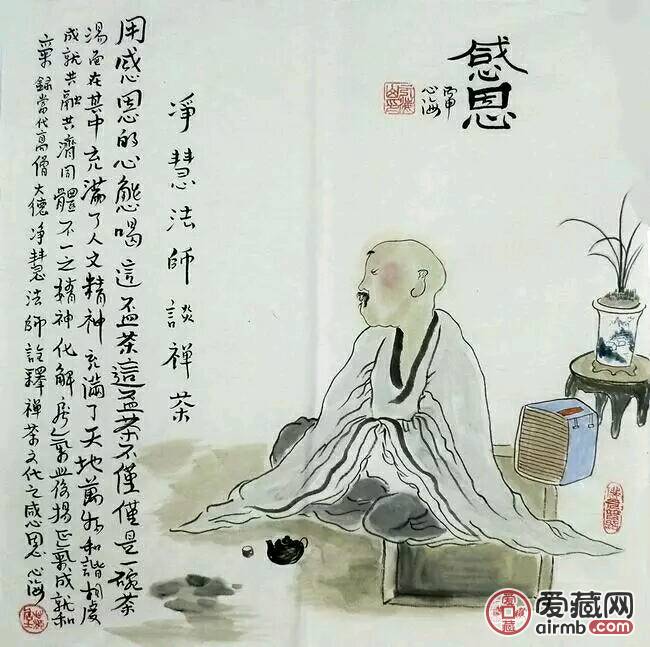 感恩
丙申
心海
淨慧法師談禪茶
用感恩的心態喝這盃茶這盃茶不僅僅是一碗茶
湯而在其中充滿了人文精神充滿了天地萬物和諧相度
成就共融共濟同體不一之精神化解戾氣發揚正氣成就和
氣錄當代高僧大德淨慧法師詮釋禪茶文化之感恩心海
爱藏网
airmb.com